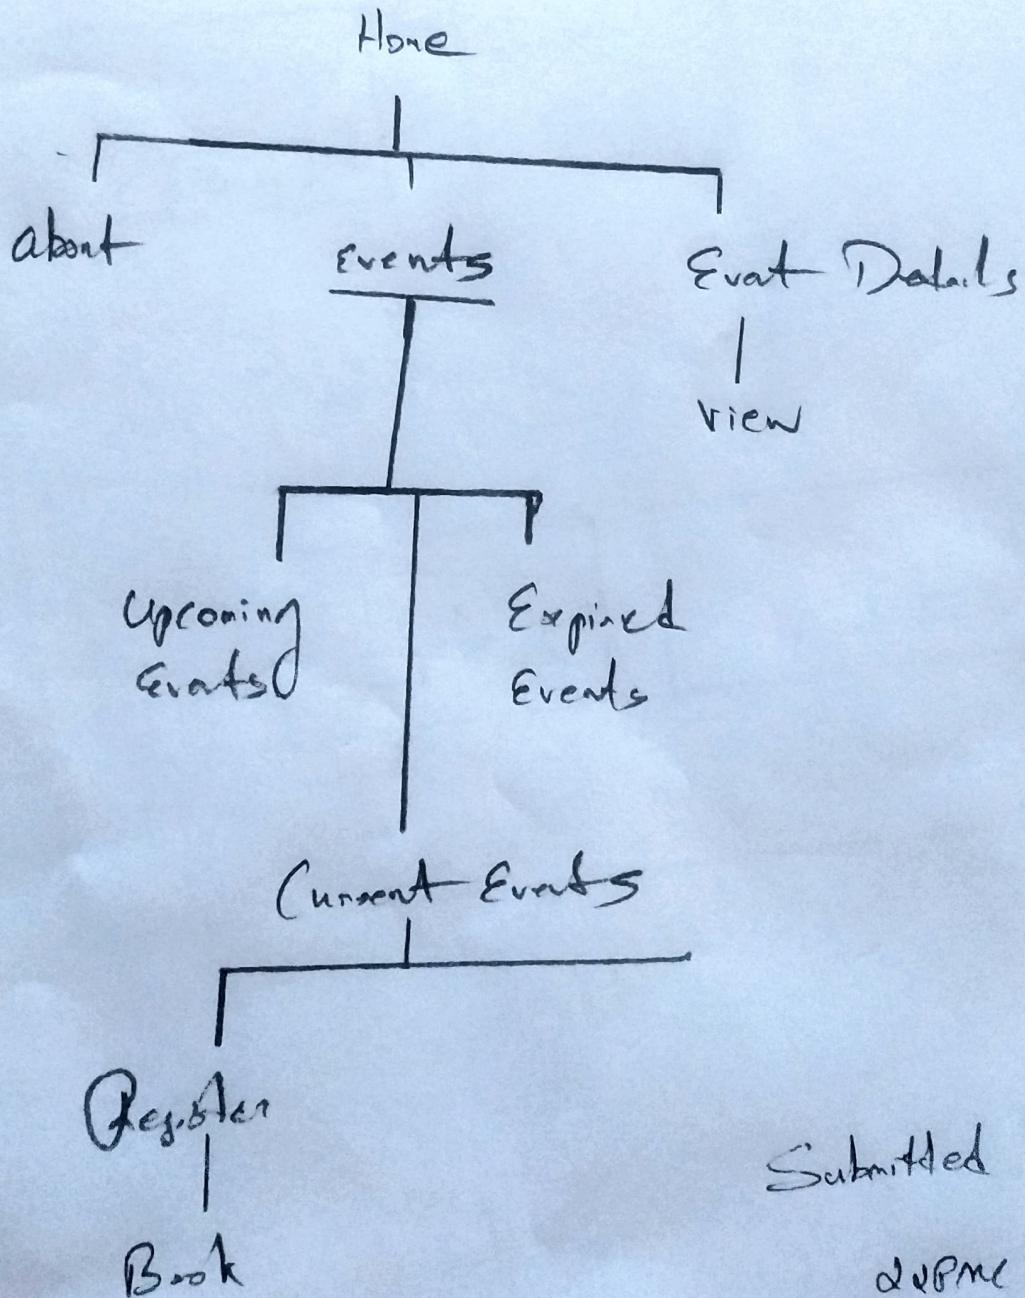 Home
about
Events
Event Details
view
Upcoming
Events
Expired
Events
Current Events
Register
Submitted
Book